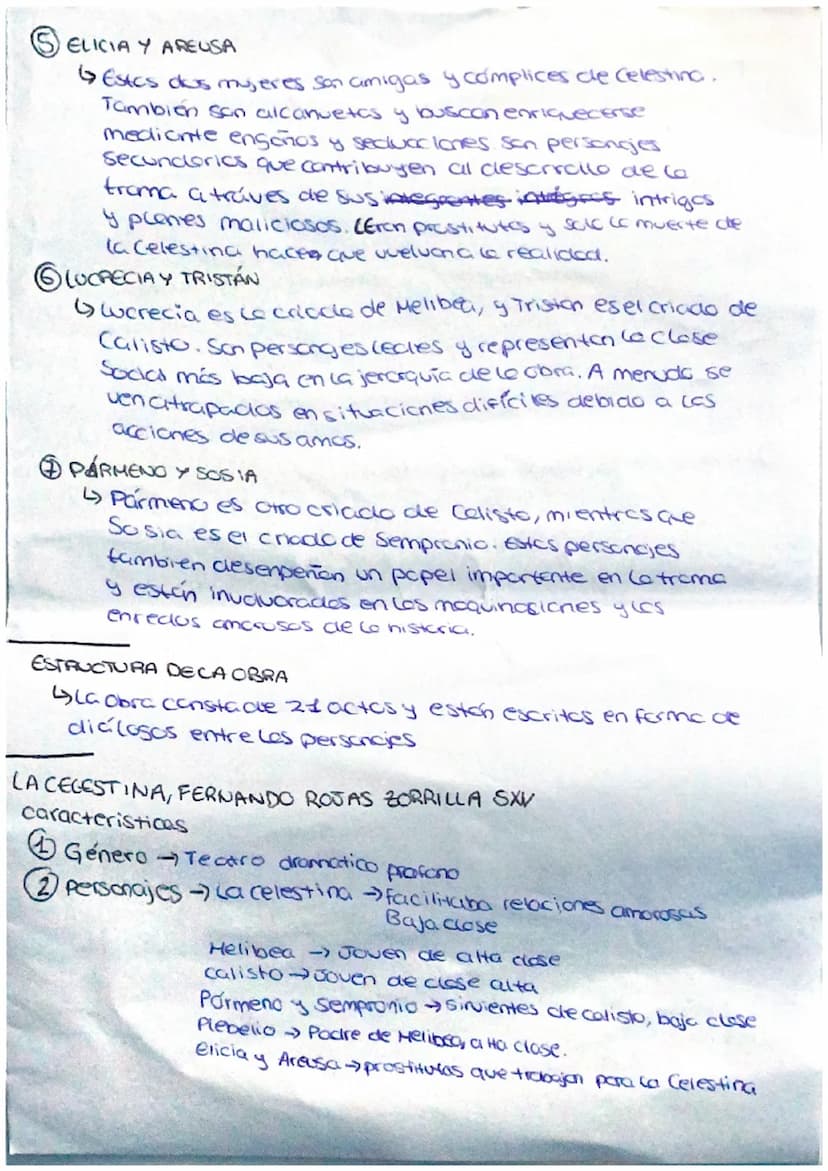 ⑤ ELICIA Y AREUSA
↳ Estas dos mujeres son amigas y cómplices de Celestina.
También son alcahuetas y buscan enriquecerse
mediante engaños y seducciones. Son personajes
secundarios que contribuyen al desarrollo de la
trama a tráves de sus integrantes intrigas
y planes maliciosos. Eran prostitutas y solo la muerte de
la Celestina, hacen que vuelvan a la realidad.
⑥ LUCRECIA Y TRISTÁN
↳ Lucrecia es la criada de Melibea, y Tristán es el criado de
Calisto. Son personajes leales y representan la clase
social más baja en la jerarquía de la obra. A menudo, se
ven atrapados en situaciones difíciles debido a las
acciones de sus amos.
⑦ PÁRMENO Y SOSIA
↳ Pármeno es otro criado de Calisto, mientras que
Sosia es el criado de Sempronio. Estos personajes
también desenpeñan un papel importante en la trama
y están involucrados en las maquinaciones y los
enredos amorosos de la historia.
ESTRUCTURA DE LA OBRA
↳ La obra consta de 21 actos y están escritos en forma de
diálogos entre los personajes
LA CELESTINA, FERNANDO ROJAS ZORRILLA SXV
características
① Género → Teatro dramatico profano
② Personajes → La celestina → facilitaba relaciones amorosas
Baja clase
Melibea → Joven de alta clase
calisto → Joven de clase alta
Pármeno y Sempronio → sirvientes de calisto, baja clase
Plebelio → Padre de Melibea, alta clase.
Elicia y Areusa → prostitutas que trabajan para la Celestina